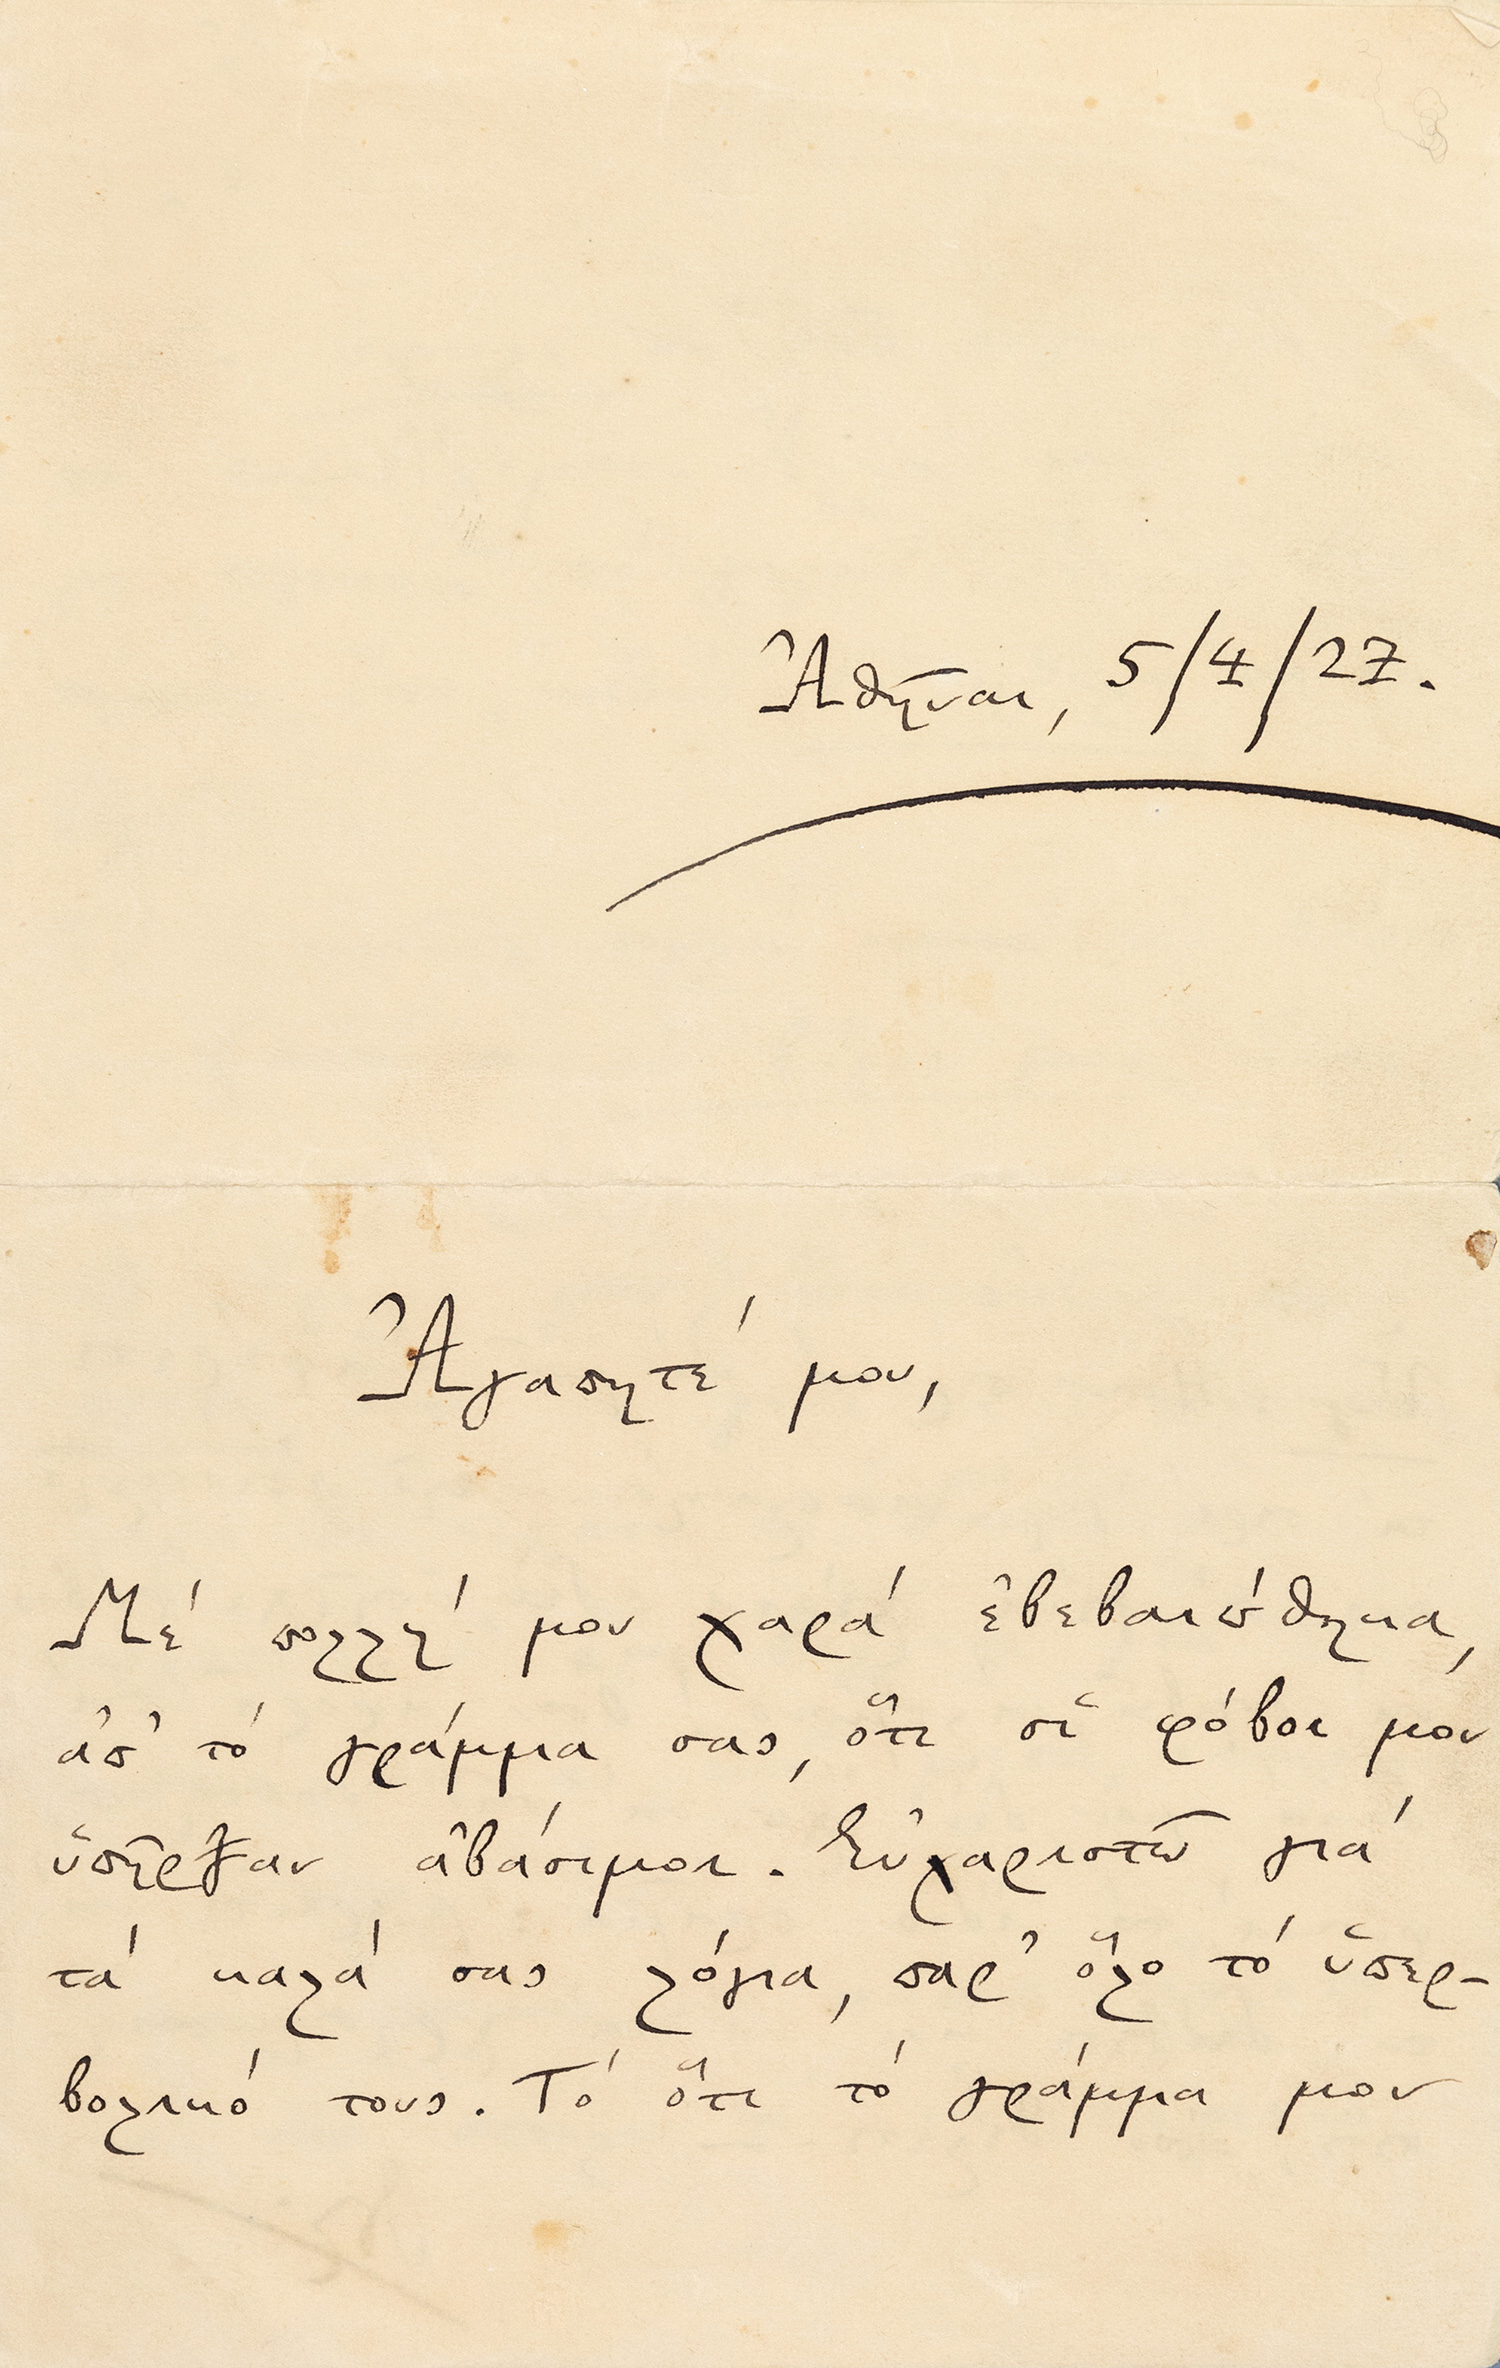 Ἀθῆναι, 5/4/27.
Ἀγαπητέ μου,
Μέ πολλή μου χαρά ἐβεβαιώθηκα,
ἀπ’ τό γράμμα σας, ὅτι οἱ φόβοι μου
ὑπῆρξαν ἀβάσιμοι. Εὐχαριστῶ γιά
τά καλά σας λόγια, παρ’ ὅλο τό ὑπερ-
βολικό τους. Τό ὅτι τό γράμμα μου